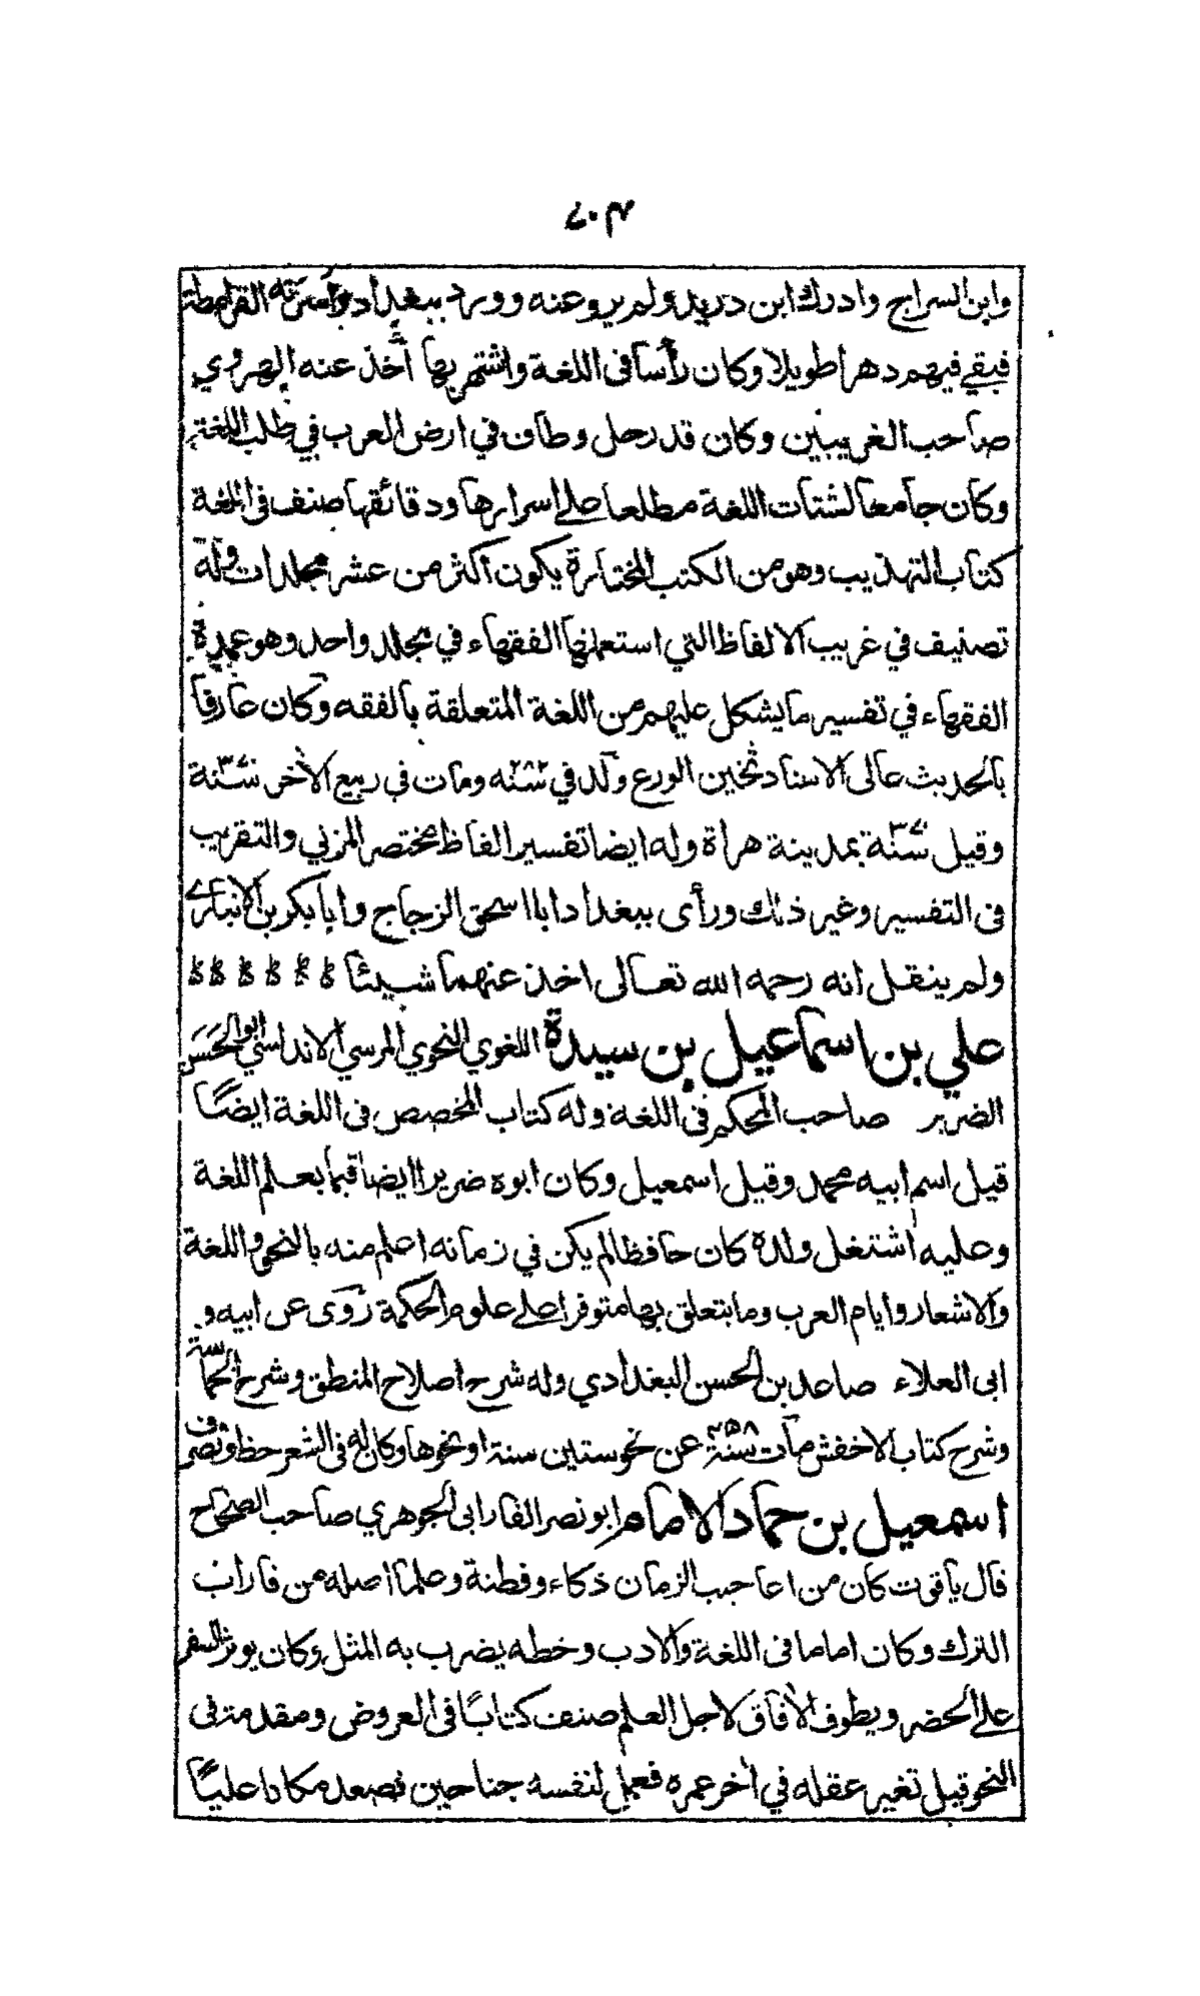 وابن السراج وادرك ابن دريد ولم يرو عنه وورد ببغداد واسرته القرامطة
فبقي فيهم دهرا طويلا وكان رأسا فى اللغة واشتهر بها أخذ عنه الهروي
صاحب الغريبين وكان قد رحل وطاف في ارض العرب في طلب اللغة
وكان جامعا لشتات اللغة مطلعا على اسرارها ودقائقها صنف فى اللغة
كتاب التهذيب وهو من الكتب المختارة يكون اكثر من عشر مجلدات وله
تصنيف في غريب الالفاظ التي استعملها الفقهاء في مجلد واحد وهو عمدة
الفقهاء في تفسير ما يشكل عليهم من اللغة المتعلقة بالفقه وكان عارفا
بالحديث عالى الاسناد ثخين الورع ولد في سنة ٢٨٢ ومات في ربيع الآخر سنة ٣٧٠
وقيل سنة بمدينة هراة وله ايضا تفسير الفاظ مختصر المزني والتقريب
فى التفسير وغير ذلك ورأى ببغداد ابا اسحق الزجاج وابا بكر بن الانباري
ولم ينقل انه رحمه الله تعالى اخذ عنهما شيئا
علي بن اسماعيل بن سيدة اللغوي النحوي المرسي الاندلسي ابو الحسن
الضرير صاحب المحكم فى اللغة وله كتاب المخصص فى اللغة ايضا
قيل اسم ابيه محمد وقيل اسمعيل وكان ابوه ضريرا ايضا قيما بعلم اللغة
وعليه اشتغل ولده كان حافظا لم يكن في زمانه اعلم منه بالنحو واللغة
والاشعار وايام العرب وما يتعلق بها متوفرا على علوم الحكمة روى عن ابيه و
ابى العلاء صاعد بن الحسن البغدادي وله شرح اصلاح المنطق وشرح الحماسة
وشرح كتاب الاخفش مات سنة ٤٥٨ عن نحو ستين سنة او نحوها وكان له فى الشعر حظ وتصرف
اسمعيل بن حماد الامام ابو نصر الفارابى الجوهري صاحب الصحاح
قال ياقوت كان من اعاجيب الزمان ذكاء وفطنة وعلما اصله من فاراب
الترك وكان اماما فى اللغة والادب وخطه يضرب به المثل وكان يوثر السفر
على الحضر ويطوف الآفاق لاجل العلم صنف كتابا فى العروض ومقدمة فى
النحو قيل تغير عقله في آخر عمره فعمل لنفسه جناحين فصعد مكانا عليا